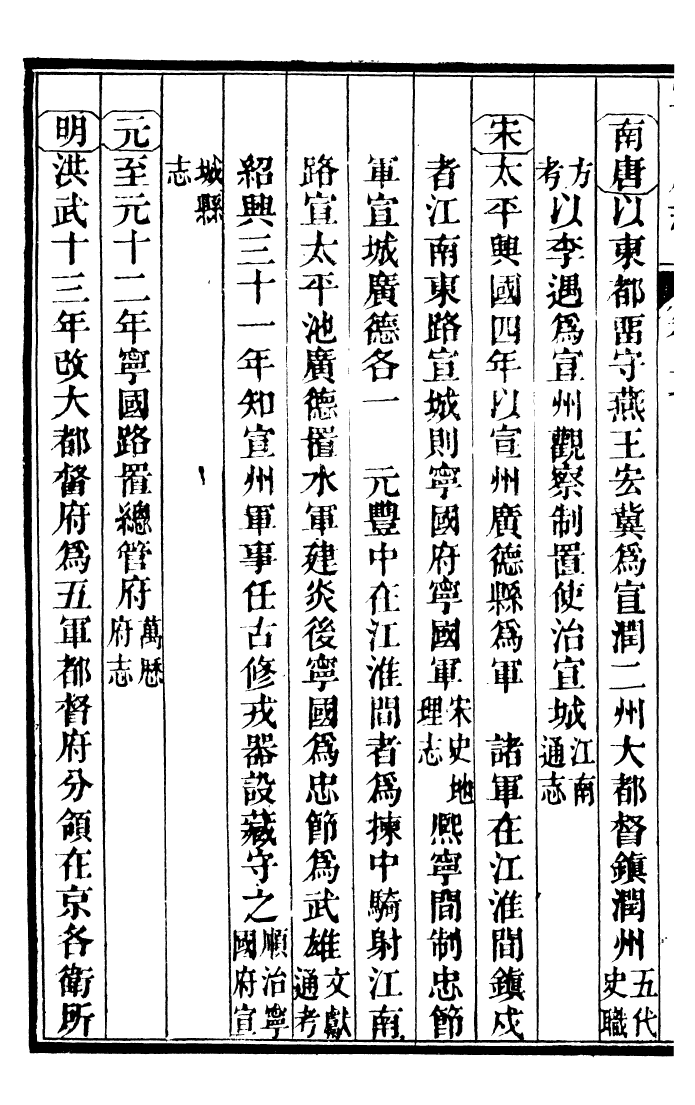 南唐以東都畱守燕王宏冀爲宣潤二州大都督鎮潤州五代史職
方考以李遇爲宣州觀察制置使治宣城江南通志
宋太平興國四年以宣州廣德縣爲軍　諸軍在江淮間鎮戍
者江南東路宣城則寧國府寧國軍宋史地理志熙寧間制忠節
軍宣城廣德各一　元豐中在江淮間者爲揀中騎射江南
路宣太平池廣德置水軍建炎後寧國爲忠節爲武雄文獻通考
紹興三十一年知宣州軍事任古修戎器設藏守之順治寧國府宣
城縣志
元至元十二年寧國路置總管府萬歷府志
明洪武十三年改大都督府爲五軍都督府分領在京各衞所